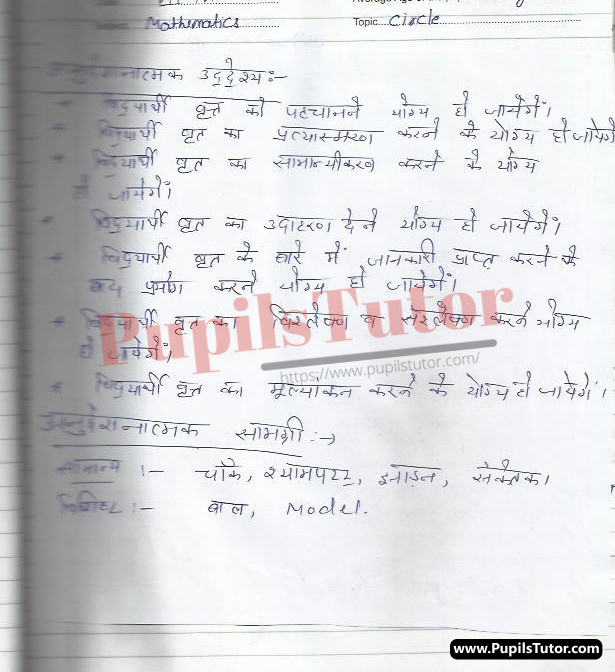 Mathematics
Topic Circle
अनुदेशनात्मक उद्देश्य:-
* विद्यार्थी वृत्त को पहचानने योग्य हो जायेगें।
* विद्यार्थी वृत का प्रत्यास्मरण करने के योग्य हो जायेगे
* विद्यार्थी वृत का सामान्यीकरण करने के योग्य
हो जायेगें।
* विद्यार्थी वृत का उदाहरण देने योग्य हो जायेगें।
* विद्यार्थी वृत के बारे में जानकारी प्राप्त करने के
बाद प्रयोग करने योग्य हो जायेगें।
* विद्यार्थी वृत का विश्लेषण व संश्लेषण करने योग्य
हो जायेगें।
* विद्यार्थी वृत्त का मूल्यांकन करने के योग्य हो जायेगें।
अनुदेशनात्मक सामग्री :->
सामान्य :- चॉक, श्यामपट्ट, झाड़न, संकेतक।
विशिष्ट :- बाल, Model.
PupilsTutor
https://www.pupilstutor.com/
www.PupilsTutor.Com